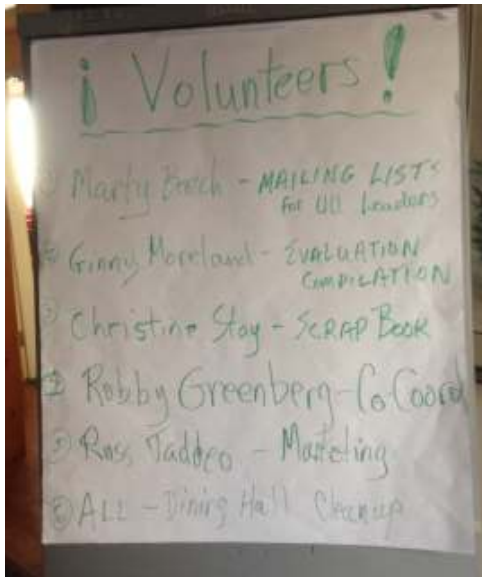 ¡ Volunteers!
① Marty Beech - MAILING LISTS
for UU Leaders
② Ginny Moreland - EVALUATION
COMPILATION
③ Christine Stay - SCRAP BOOK
④ Robby Greenberg - Co Coord
⑤ Russ Taddeo - Marketing
⑥ ALL - Dining Hall Cleanup